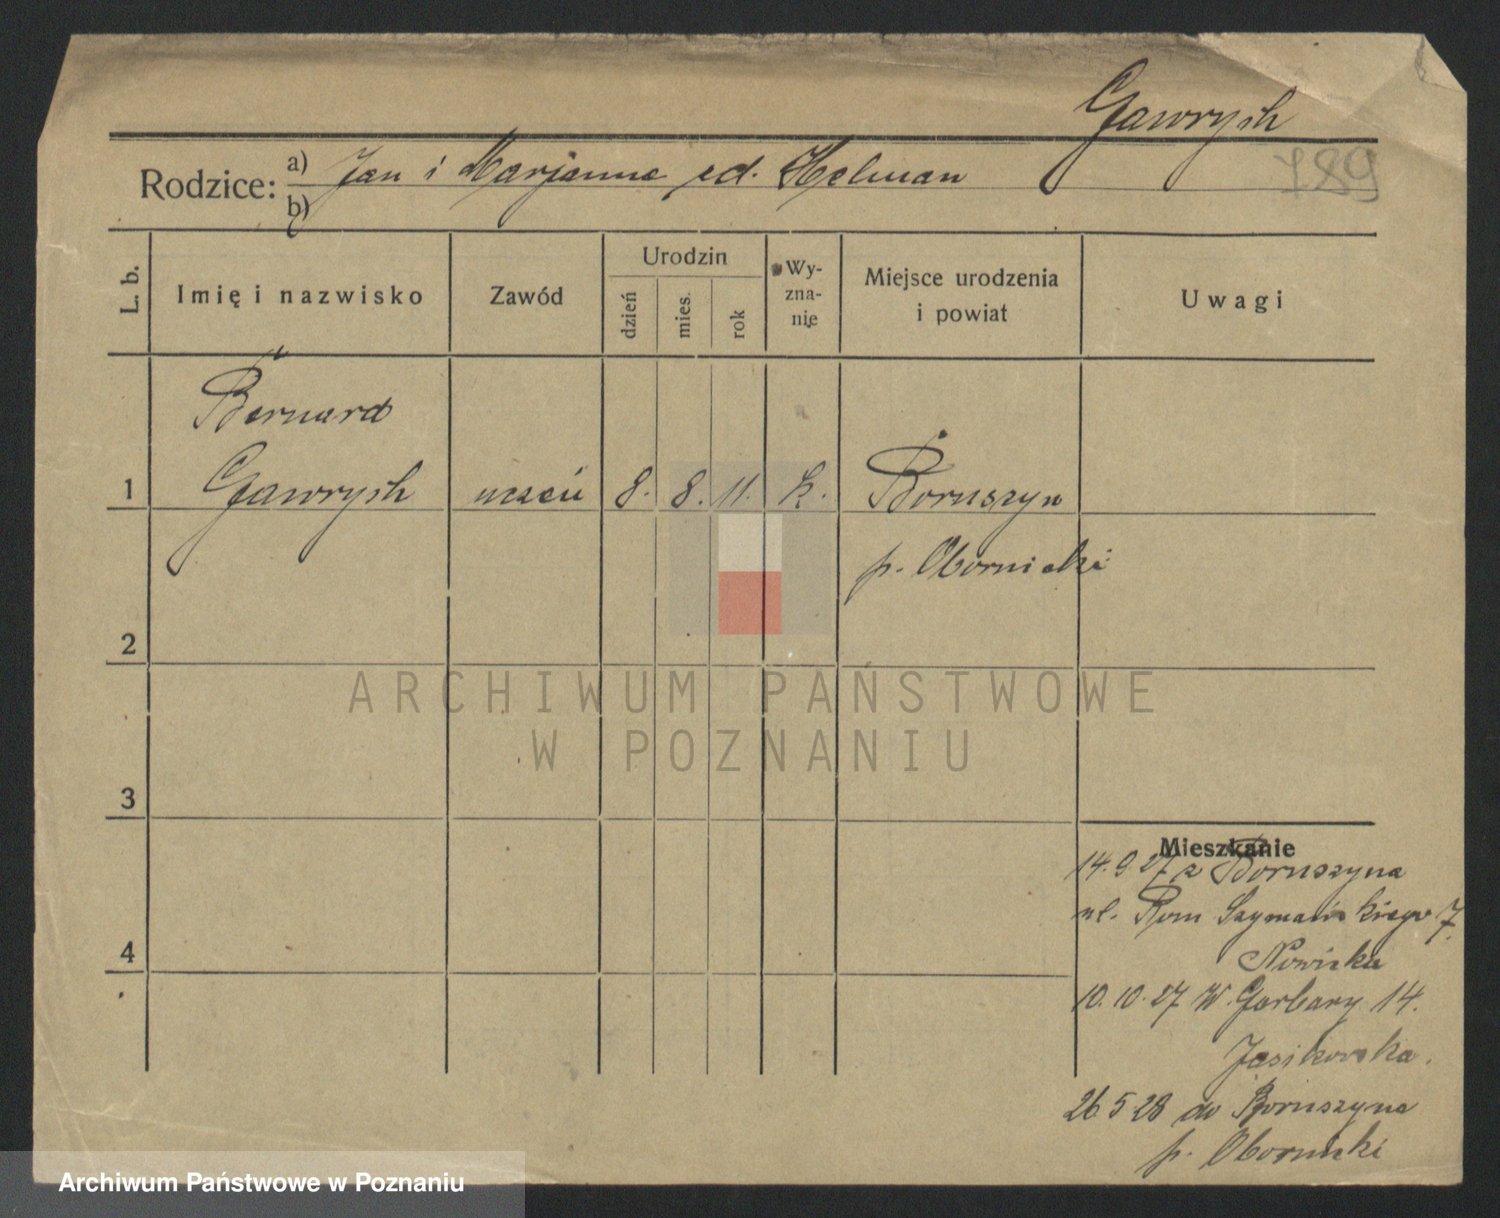 Gawrych
789
Rodzice: a) Jan i Marjanna zd. Helman
b)
L. b.
Imię i nazwisko
Zawód
Urodzin
dzień
mies.
rok
Wy-
zna-
nie
Miejsce urodzenia
i powiat
Uwagi
Bernard
1 Gawrych uczeń 8. 8. 11. k. Boruszyn
p. Obornicki
2
ARCHIWUM PAŃSTWOWE
W POZNANIU
3
Mieszkanie
14.9.27 z Boruszyna
ul. Rom Szymańskiego 7.
Nowicka
4
10.10.27 W. Garbary 14.
Jasikowska.
26 5 28 do Boruszyna
p. Obornicki
Archiwum Państwowe w Poznaniu